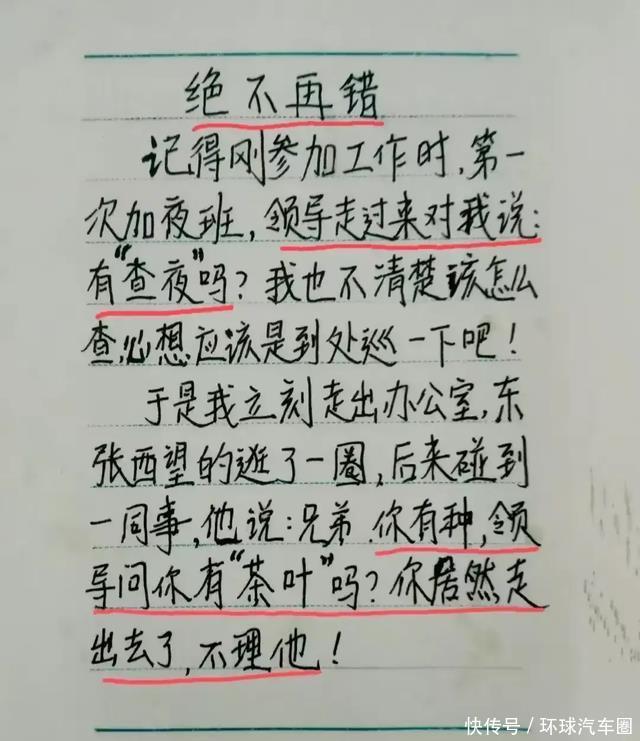 绝不再错
记得刚参加工作时,第一
次加夜班,领导走过来对我说:
有“查夜”吗?我也不清楚该怎么
查,心想应该是到处巡一下吧!
于是我立刻走出办公室,东
张西望的逛了一圈,后来碰到
一同事,他说:兄弟.你有种,领
导问你有“茶叶”吗?你居然走
出去了,不理他!
快传号/环球汽车圈